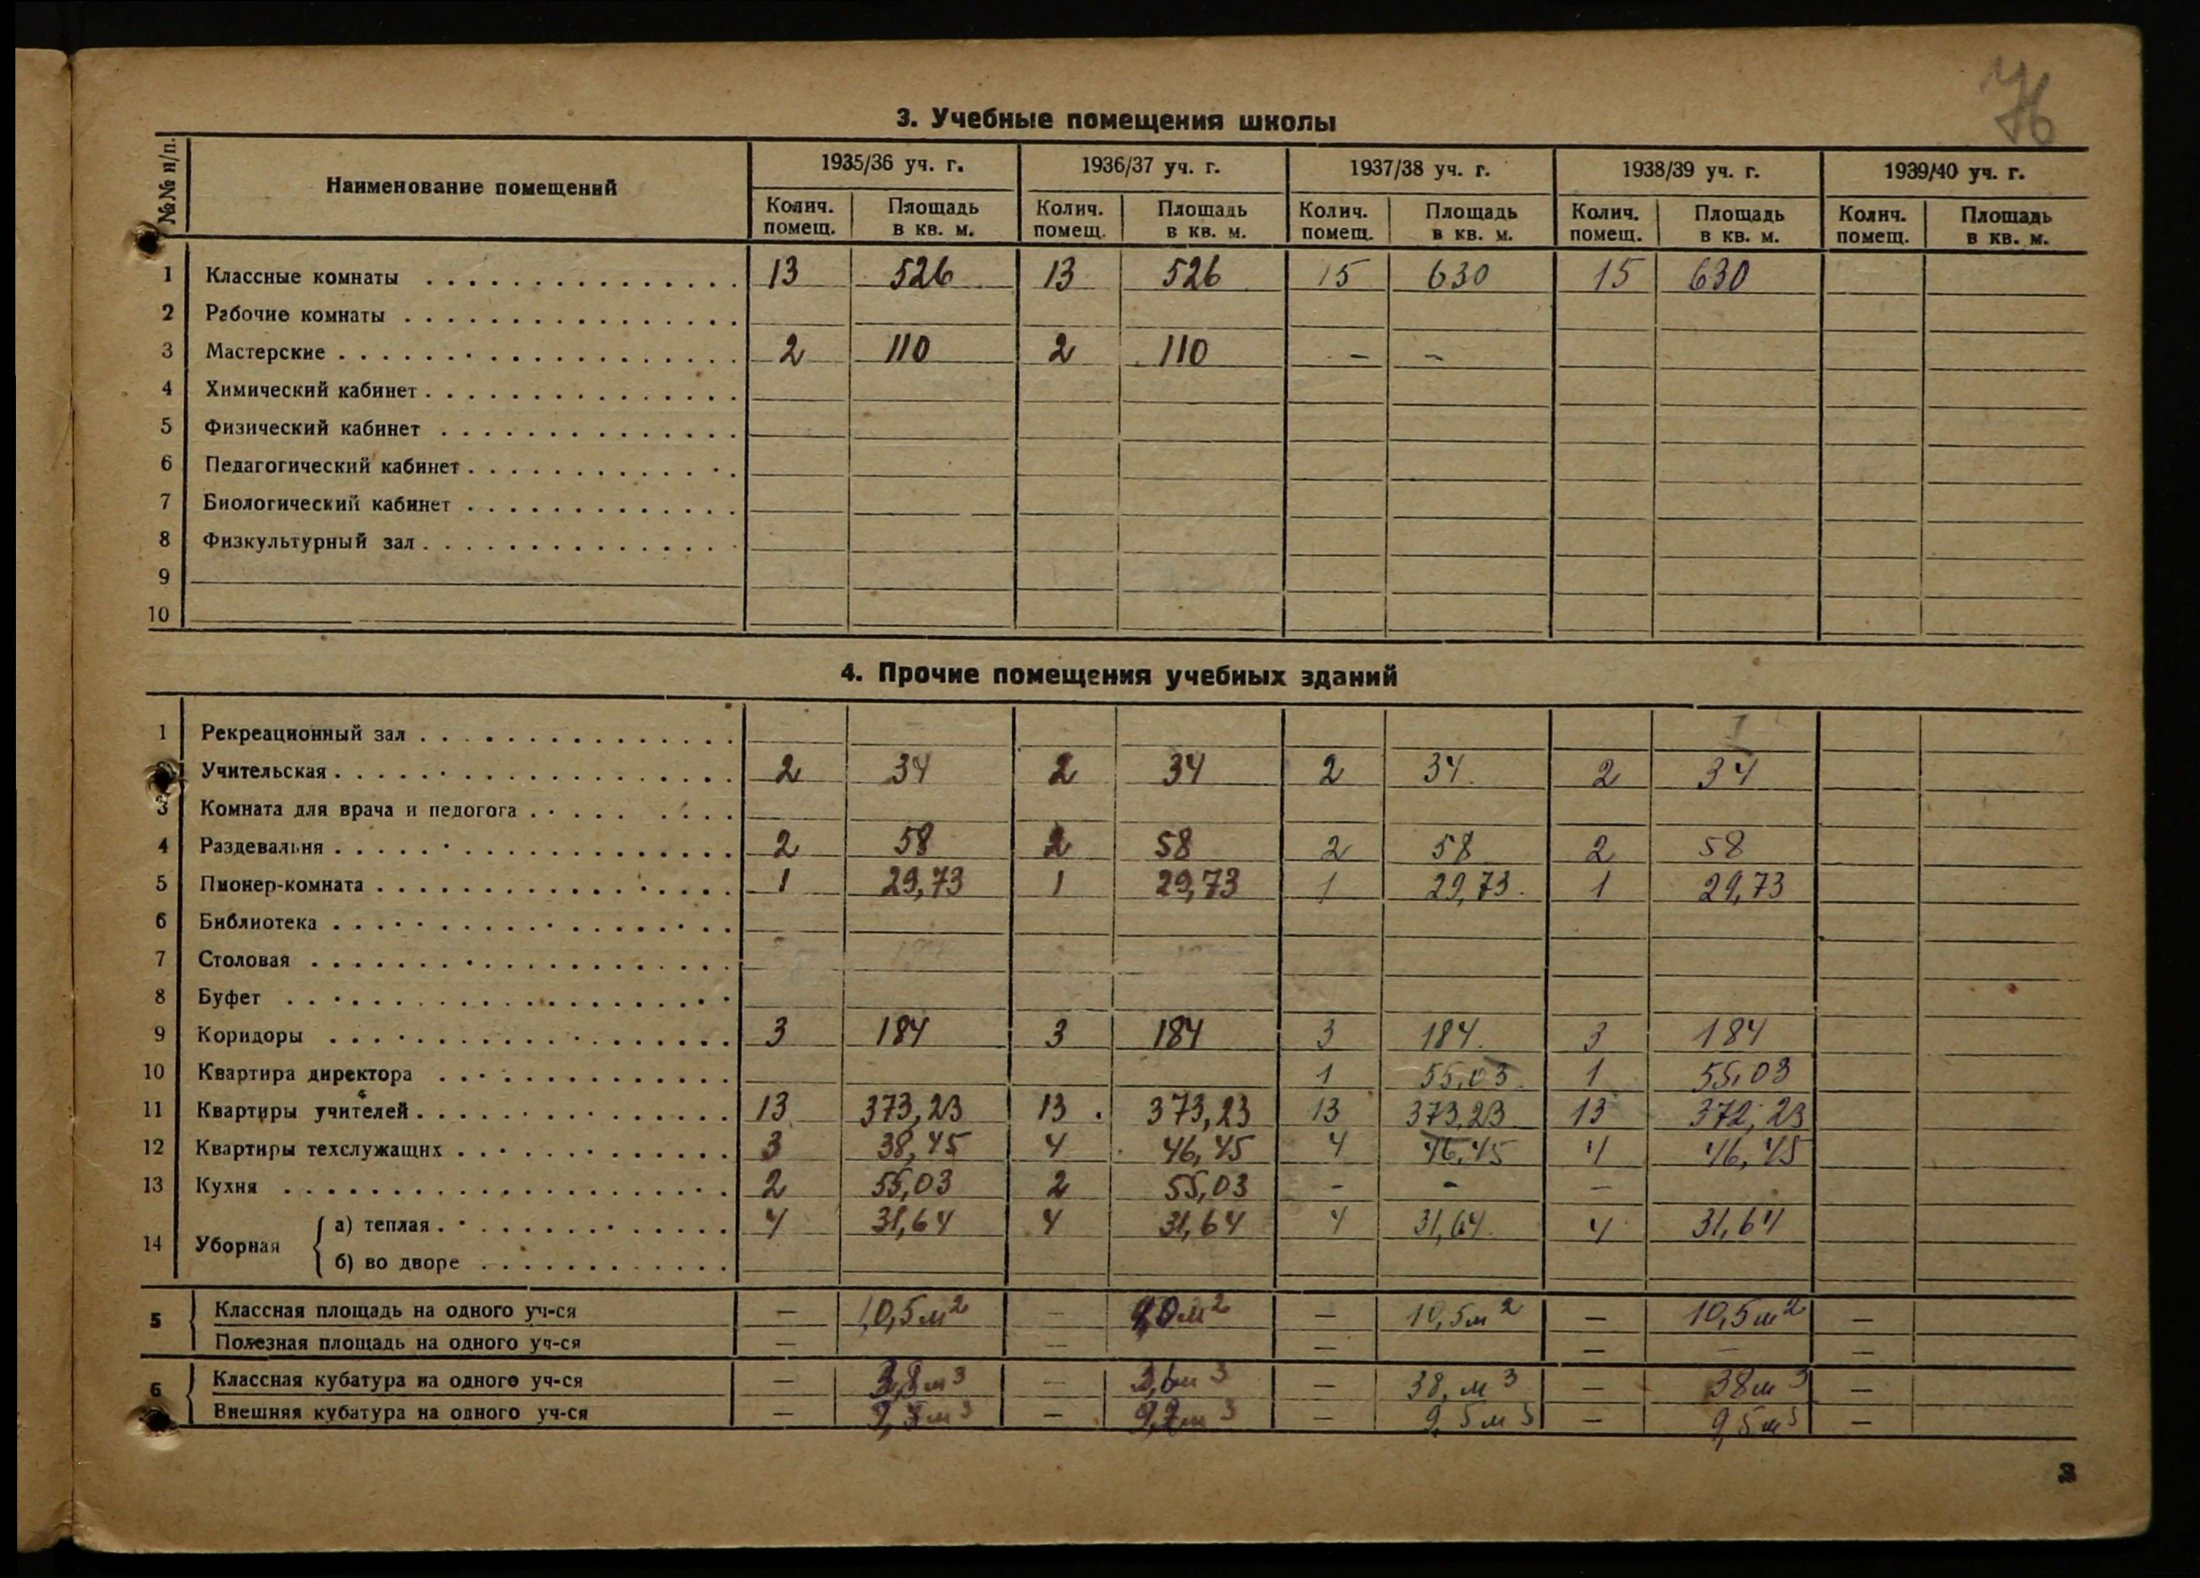 76
3. Учебные помещения школы
№№ п/п. Наименование помещений 1935/36 уч. г. 1936/37 уч. г. 1937/38 уч. г. 1938/39 уч. г. 1939/40 уч. г.
Колич. помещ. Площадь в кв. м. Колич. помещ. Площадь в кв. м. Колич. помещ. Площадь в кв. м. Колич. помещ. Площадь в кв. м. Колич. помещ. Площадь в кв. м.
1 Классные комнаты 13 526 13 526 15 630 15 630
2 Рабочие комнаты
3 Мастерские 2 110 2 110 - -
4 Химический кабинет
5 Физический кабинет
6 Педагогический кабинет
7 Биологический кабинет
8 Физкультурный зал
9
10
4. Прочие помещения учебных зданий
1 Рекреационный зал
Учительская 2 34 2 34 2 34 2 34
3 Комната для врача и педогога
4 Раздевальня 2 58 2 58 2 58 2 58
5 Пионер-комната 1 29,73 1 29,73 1 29,73 1 29,73
6 Библиотека
7 Столовая
8 Буфет
9 Коридоры 3 184 3 184 3 184 3 184
10 Квартира директора 1 55,03 1 55,03
11 Квартиры учителей 13 373,23 13 373,23 13 373,23 13 372,23
12 Квартиры техслужащих 3 38,45 4 46,45 4 46,45 4 46,45
13 Кухня 2 55,03 2 55,03 - - -
14 Уборная а) теплая 4 31,64 4 31,64 4 31,64 4 31,64
б) во дворе
5 Классная площадь на одного уч-ся — 10,5м2 — — 10,5м2 — 10,5м2 —
Полезная площадь на одного уч-ся — — — — — —
6 Классная кубатура на одного уч-ся — 3,8м3 — 3,6м3 — 38, м3 — 38м3 —
Внешняя кубатура на одного уч-ся — — — 9,5м3 — 9,5м3 —
3